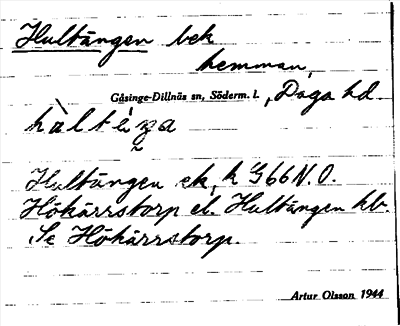 Hultängen bek
hemman,
Gåsinge-Dillnäs sn, Söderm. l., Daga hd.
hàltéŋa
Hultängen ek, h G66 N.O.
Hökärrstorp el. Hultängen hb.
Se Hökärrstorp.
Artur Olsson 1944